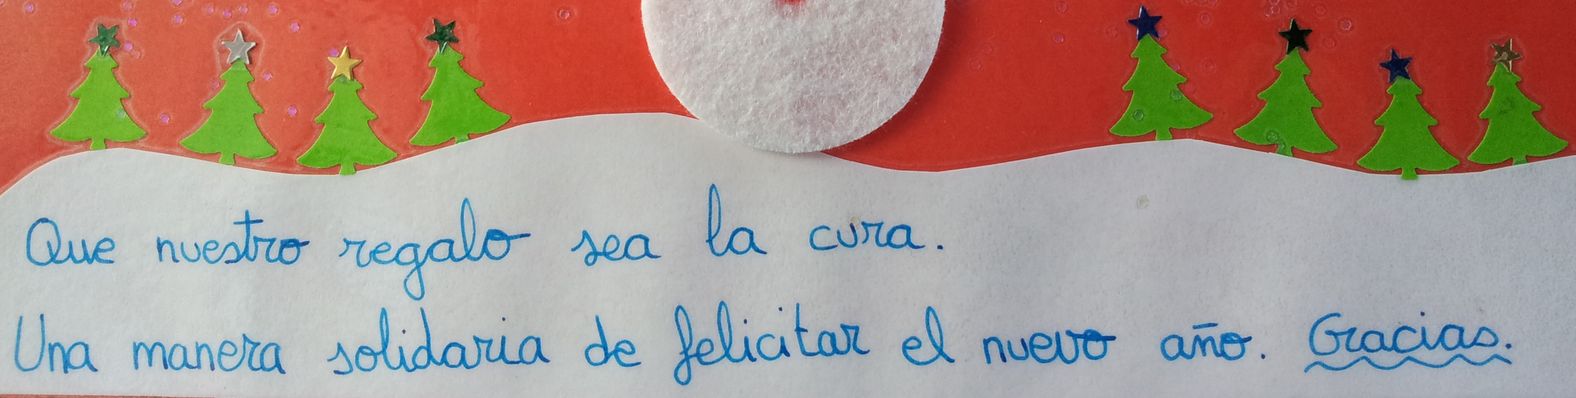 Que nuestro regalo sea la cura.
Una manera solidaria de felicitar el nuevo año. Gracias.